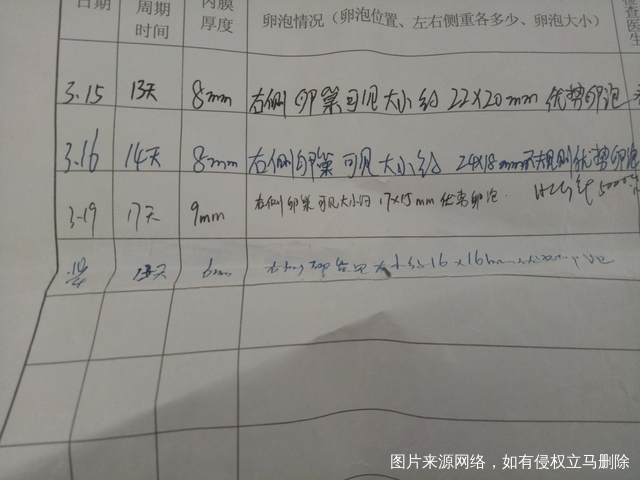 日期 周期时间 内膜厚度 卵泡情况（卵泡位置、左右侧重各多少、卵泡大小） 检查医生
3.15 13天 8mm 右侧卵巢可见大小约22X20mm优势卵泡
3.16 14天 8mm 右侧卵巢可见大小约24X18mm不规则优势卵泡
3.19 17天 9mm 右侧卵巢可见大小约17X15mm优势卵泡 HCG针5000
13天 6mm 16X16
图片来源网络，如有侵权立马删除